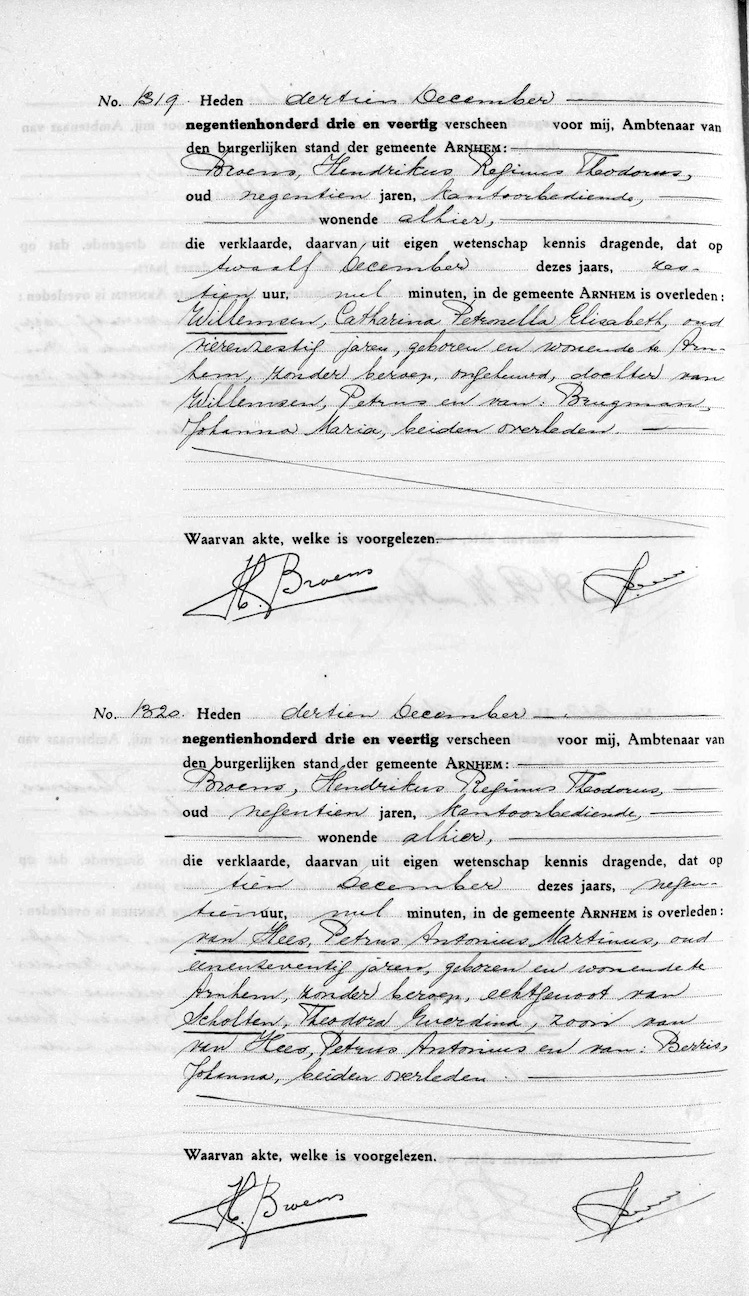 No. 1319. Heden dertien December
negentienhonderd drie en veertig verscheen voor mij, Ambtenaar van
den burgerlijken stand der gemeente ARNHEM:
Broens, Hendrikus Reginus Theodorus,
oud negentien jaren, kantoorbediende,
wonende alhier,
die verklaarde, daarvan uit eigen wetenschap kennis dragende, dat op
twaalf December dezes jaars, zes-
tien uur, nul minuten, in de gemeente ARNHEM is overleden:
Willemsen, Catharina Petronella Elisabeth, oud
vierenzestig jaren, geboren en wonende te Arn-
hem, zonder beroep, ongehuwd, dochter van
Willemsen, Petrus en van: Brugman,
Johanna Maria, beiden overleden.
Waarvan akte, welke is voorgelezen.
H. Broens
No. 1320. Heden dertien December
negentienhonderd drie en veertig verscheen voor mij, Ambtenaar van
den burgerlijken stand der gemeente ARNHEM:
Broens, Hendrikus Reginus Theodorus,
oud negentien jaren, kantoorbediende,
wonende alhier,
die verklaarde, daarvan uit eigen wetenschap kennis dragende, dat op
tien December dezes jaars, negen-
tien uur, nul minuten, in de gemeente ARNHEM is overleden:
van Hees, Petrus Antonius Martinus, oud
eenenzeventig jaren, geboren en wonende te
Arnhem, zonder beroep, echtgenoot van
Scholten, Theodora Everdina, zoon van
van Hees, Petrus Antonius en van: Berris,
Johanna, beiden overleden.
Waarvan akte, welke is voorgelezen.
H. Broens